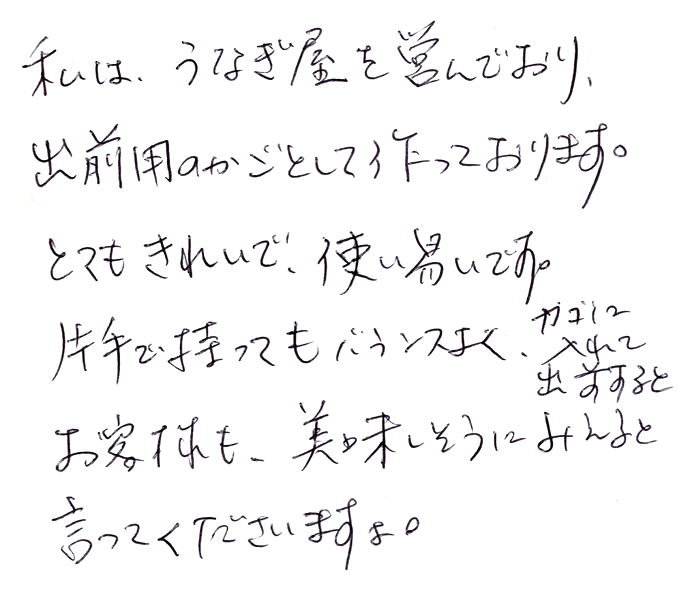 私は、うなぎ屋を営んでおり、
出前用のかごとして作っております。
とてもきれいで、使い易いです。
片手で持ってもバランスよく、カゴに
入れて
出前すると
お客様も、美味しそうにみえると
言ってくださいますよ。